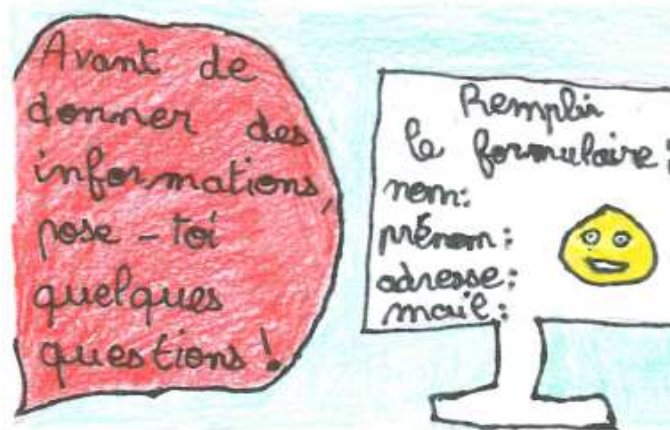 Avant de
donner des
informations,
pose-toi
quelques
questions !
Remplir
le formulaire :
nom:
prénom :
adresse :
mail :